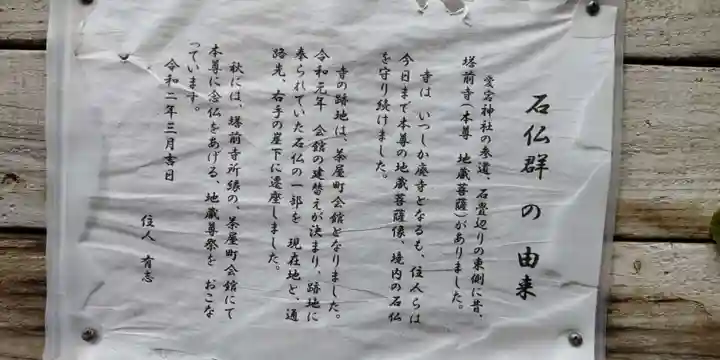 石仏群の由来
愛宕神社の参道、石畳辺りの東側に昔、
塔前寺(本尊 地蔵菩薩)がありました。
寺は いつしか廃寺となるも、住人らは
今日まで本尊の地蔵菩薩像、境内の石仏
を守り続けました。
寺の跡地は、茶屋町会館となりました。
令和元年 会館の建替えが決まり、跡地に
奉られていた石仏の一部を 現在地と、通
路先、右手の崖下に遷座しました。
秋には、塔前寺所縁の、茶屋町会館にて
本尊に念仏をあげる、地蔵尊祭を おこな
っています。
令和二年三月吉日
住人 有志